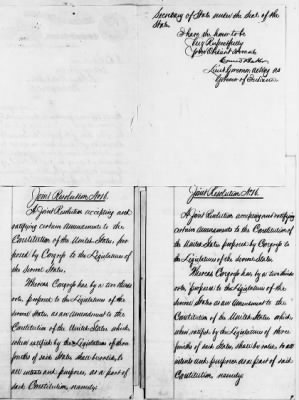 Secretary of State under the Seal of the
State.
I have the honor to be
Very Respectfully
Your Obedient Servant
Conrad Baker
Lieut Governor acting as
Governor of Indiana
Joint Resolution No 16.
A Joint Resolution accepting and
ratifying certain amendments to the
Constitution of the United States, pro-
posed by Congress to the Legislatures of
the several States.
Whereas Congress has by a two thirds
vote, proposed to the Legislatures of the
several States, as an amendment to the
Constitution of the United States which
when ratified by the Legislatures of three
fourths of said States, shall be valid, to
all intents and purposes, as a part of
said Constitution, namely:
Joint Resolution No 16.
A Joint Resolution accepting and ratifying
certain amendments to the Constitution of
the United States proposed by Congress to
the Legislatures of the several States.
Whereas Congress has by a two thirds
vote proposed to the Legislatures of the
several States as an amendment to the
Constitution of the United States which
when ratified by the Legislatures of three
fourths of said States, shall be valid, to all
intents and purposes, as a part of said
Constitution, namely: